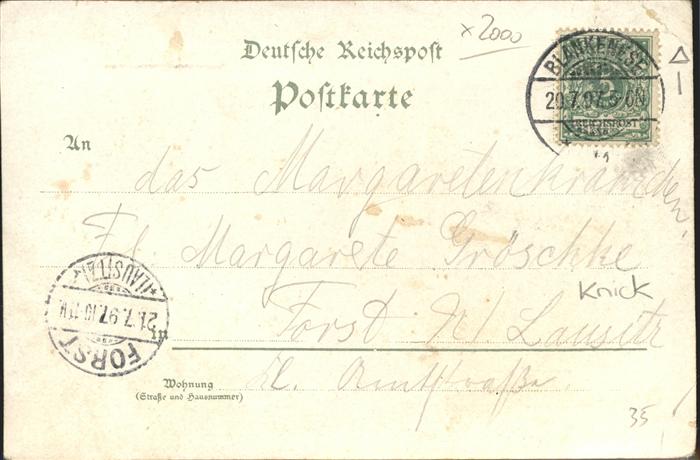 × 2000
Deutsche Reichspost
Postkarte
BLANKENESE
20.7.97. 5-6N
5
REICHSPOST
An
das Margaretenkränzchen
Frl. Margarete Gröschke
Knick
Forst N/ Lausitz
in
(LAUSITZ)
21.7.97. 10-11V.
FORST
Wohnung
(Straße und Hausnummer)
Kl. Amtstraße.
35